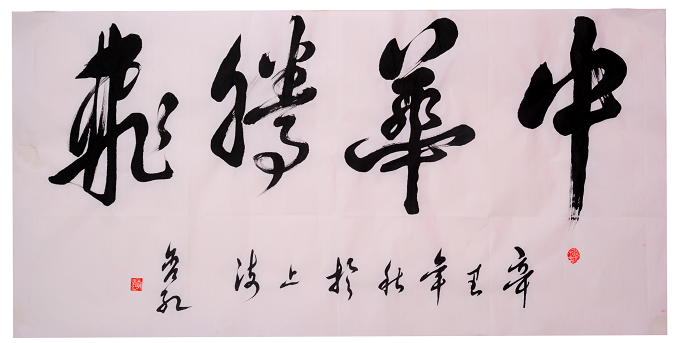 中華騰飛
辛丑年秋於上海